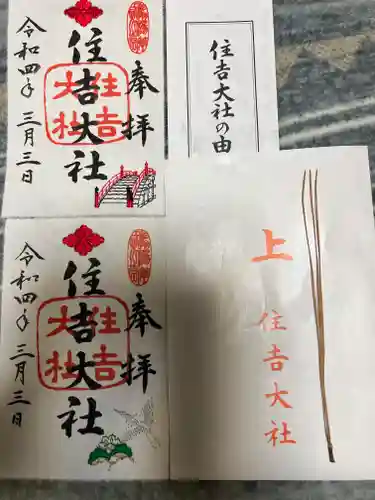 奉拝
住吉大社
住吉大社
令和四年 三月三日
住吉大社の由
奉拝
住吉大社
住吉大社
令和四年 三月三日
上
住吉大社